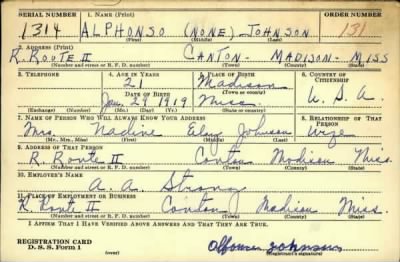 SERIAL NUMBER 1. NAME (Print) ORDER NUMBER
1314 ALPHONSO (NONE) JOHNSON 131
(First) (Middle) (Last)
2. ADDRESS (Print)
R. ROUTE II CANTON - MADISON - MISS
(Number and street or R. F. D. number) (Town) (County) (State)
3. TELEPHONE 4. AGE IN YEARS 5. PLACE OF BIRTH 6. COUNTRY OF CITIZENSHIP
21 Madison
DATE OF BIRTH (Town or county)
Jan. 29 1919 Miss. U. S. A.
(Exchange) (Number) (Mo.) (Day) (Yr.) (State or country)
7. NAME OF PERSON WHO WILL ALWAYS KNOW YOUR ADDRESS 8. RELATIONSHIP OF THAT PERSON
Mrs. Nadine Johnson Wife
(Mr., Mrs., Miss) (First) (Middle) (Last)
9. ADDRESS OF THAT PERSON
R. Route II Canton Madison Miss.
(Number and street or R. F. D. number) (Town) (County) (State)
10. EMPLOYER'S NAME
A. A. Strong
11. PLACE OF EMPLOYMENT OR BUSINESS
R. Route II Canton Madison Miss.
(Number and street or R. F. D. number) (Town) (County) (State)
I AFFIRM THAT I HAVE VERIFIED ABOVE ANSWERS AND THAT THEY ARE TRUE.
REGISTRATION CARD
D. S. S. Form 1
Alfonso Johnson
(Registrant's signature)